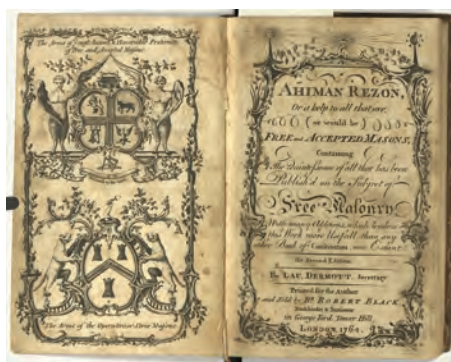 The Arms of y.e most Ancient & Honorable Fraternity
of Free and Accepted Masons.
The Arms of the Operative or Stone Masons.
AHIMAN REZON,
Or a help to all that are,
(or would be)
FREE and ACCEPTED MASONS,
Containing
The Quintessence of all that has been
Publish'd on the Subject of
Free Masonry
With many Additions, which renders
this Work more Usefull, than any
other Book of Constitution, now Extant.
The Second Edition.
By LAU. DERMOTT, Secretary
Printed for the Author
and Sold by Br. ROBERT BLACK
Bookbinder & Stationer
in George Yard, Tower Hill,
LONDON 1764.